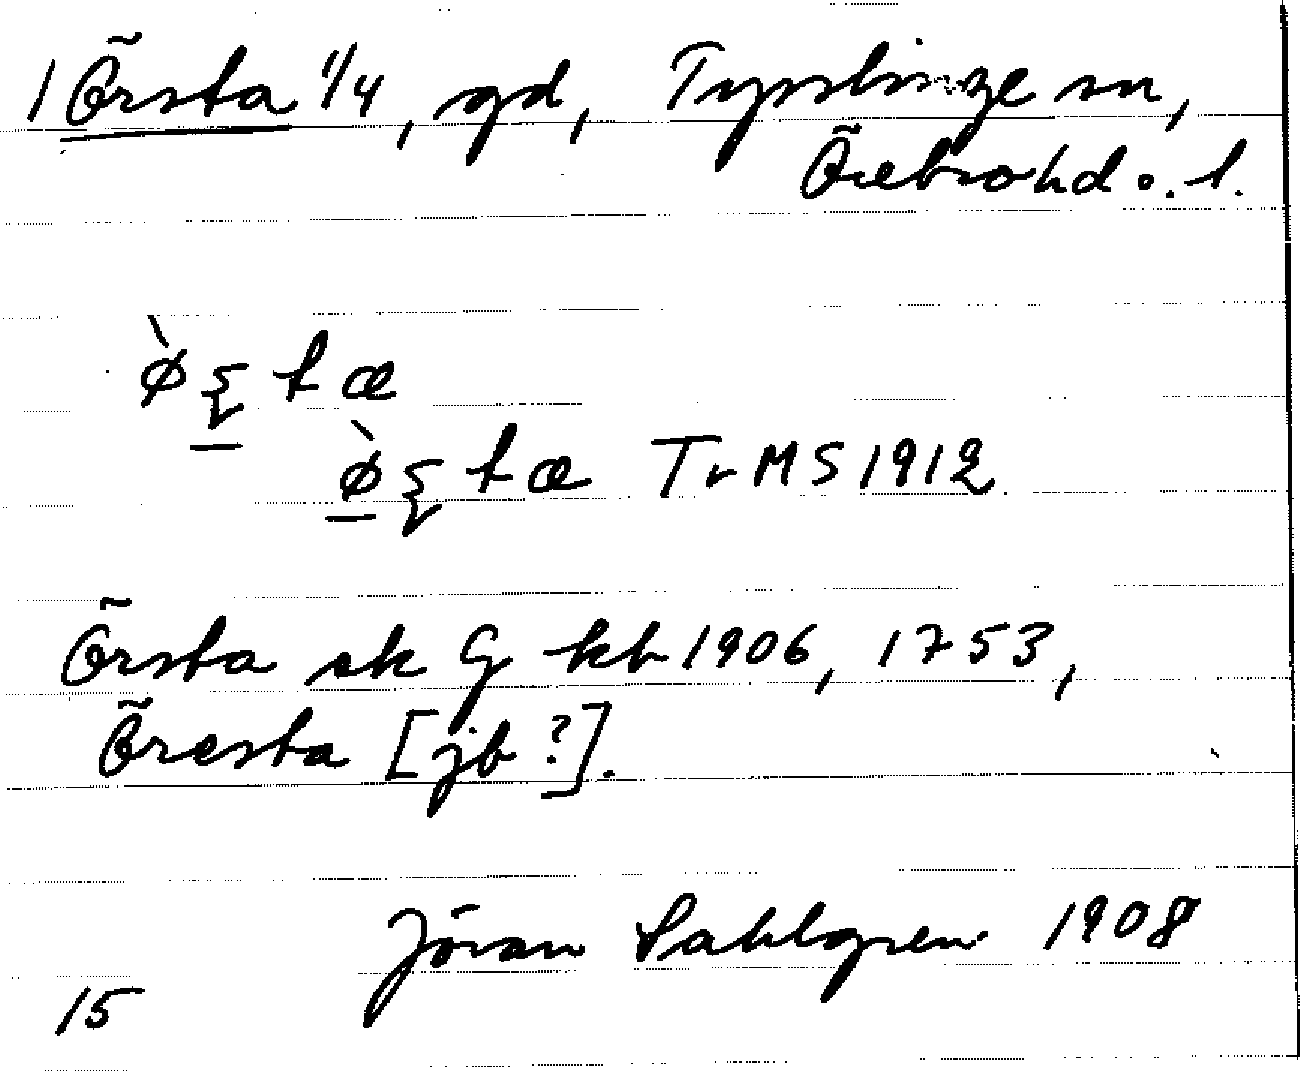 1 Örsta 1/4, gd, Tysslinge sn,
Örebro hd o. l.
ø̀ʂta
ø̀ʂta Tr MS 1912
Örsta sk G kb 1906, 1753,
Öresta [jb ?].
Jöran Sahlgren 1908
15